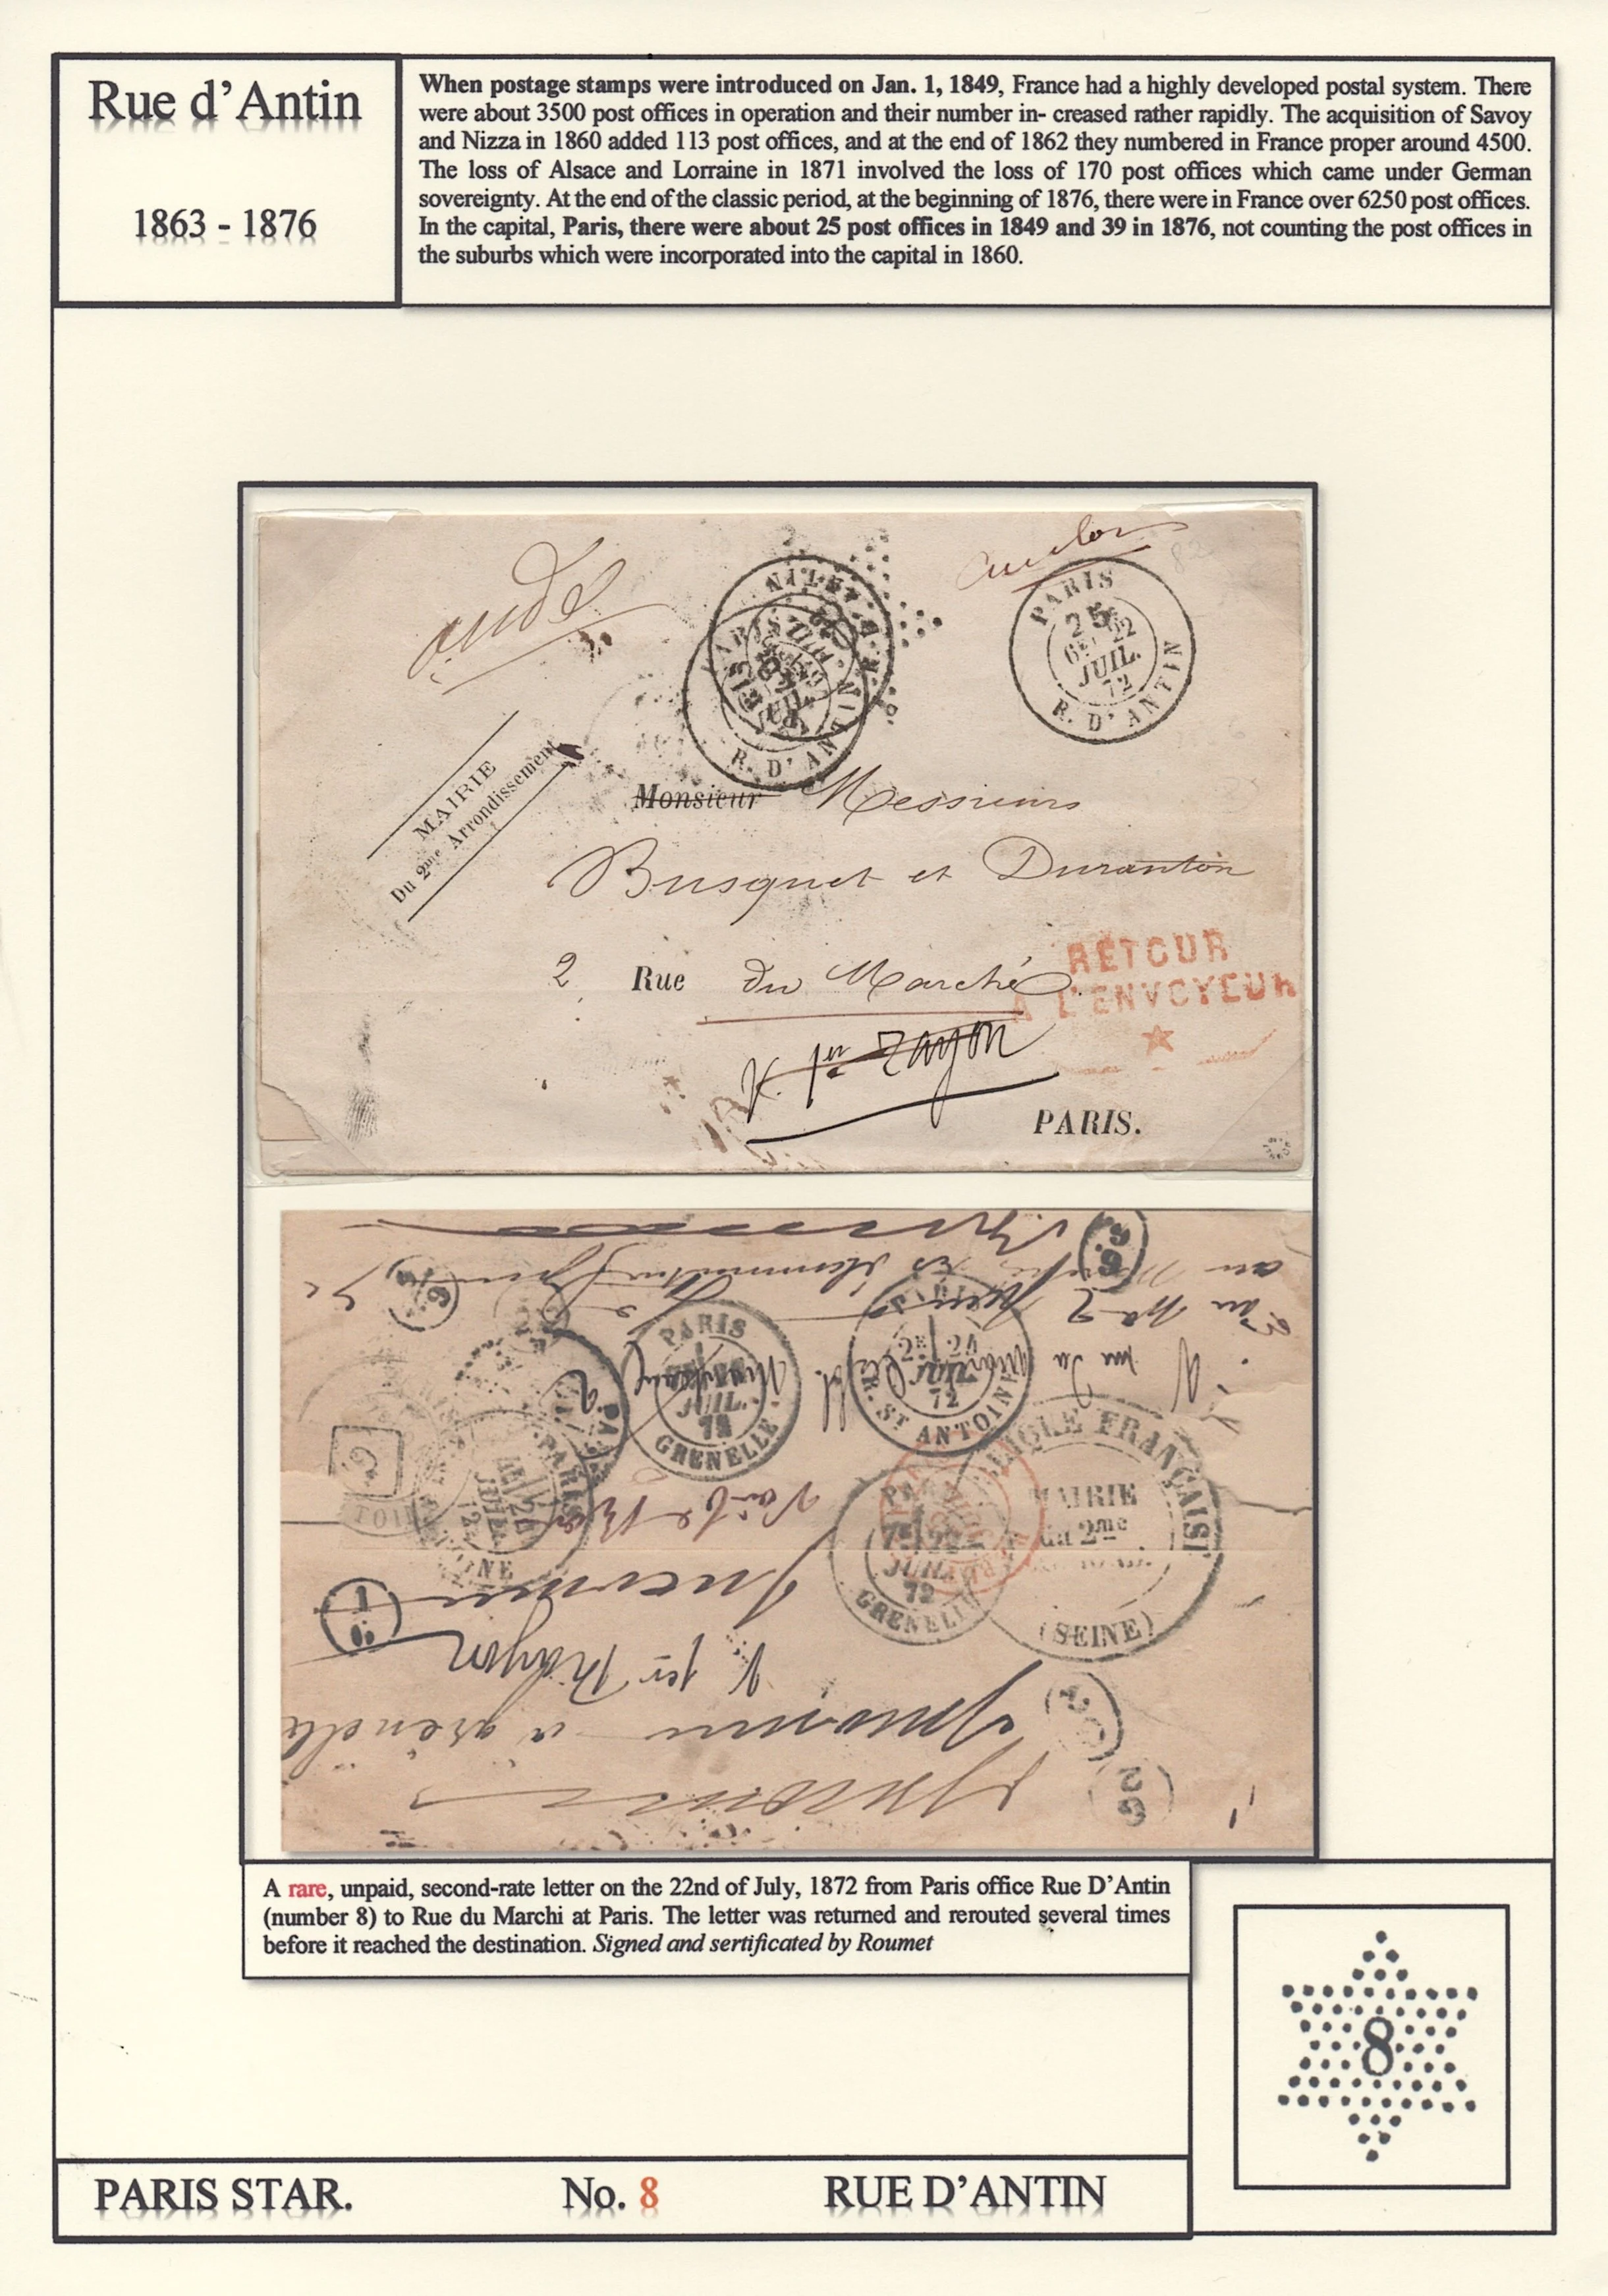 Rue d'Antin
1863 - 1876
When postage stamps were introduced on Jan. 1, 1849, France had a highly developed postal system. There
were about 3500 post offices in operation and their number in- creased rather rapidly. The acquisition of Savoy
and Nizza in 1860 added 113 post offices, and at the end of 1862 they numbered in France proper around 4500.
The loss of Alsace and Lorraine in 1871 involved the loss of 170 post offices which came under German
sovereignty. At the end of the classic period, at the beginning of 1876, there were in France over 6250 post offices.
In the capital, Paris, there were about 25 post offices in 1849 and 39 in 1876, not counting the post offices in
the suburbs which were incorporated into the capital in 1860.
PARIS
22
JUIL.
72
R. D'ANTIN
R. D'ANTIN
MAIRIE
Du 2me Arrondissement
Monsieur Messieurs
Busquet et Duranton
2 Rue du Marché
RETOUR
A L'ENVOYEUR
1er rayon
PARIS.
PARIS
JUIL.
72
GRENELLE
24
72
R. ST ANTOINE
PARIS
JUIL.
72
GRENELLE
FRANÇAISE
MAIRIE
du 2me
(SEINE)
1er Rayon
A rare, unpaid, second-rate letter on the 22nd of July, 1872 from Paris office Rue D'Antin
(number 8) to Rue du Marchi at Paris. The letter was returned and rerouted several times
before it reached the destination. Signed and sertificated by Roumet
8
PARIS STAR. No. 8 RUE D'ANTIN